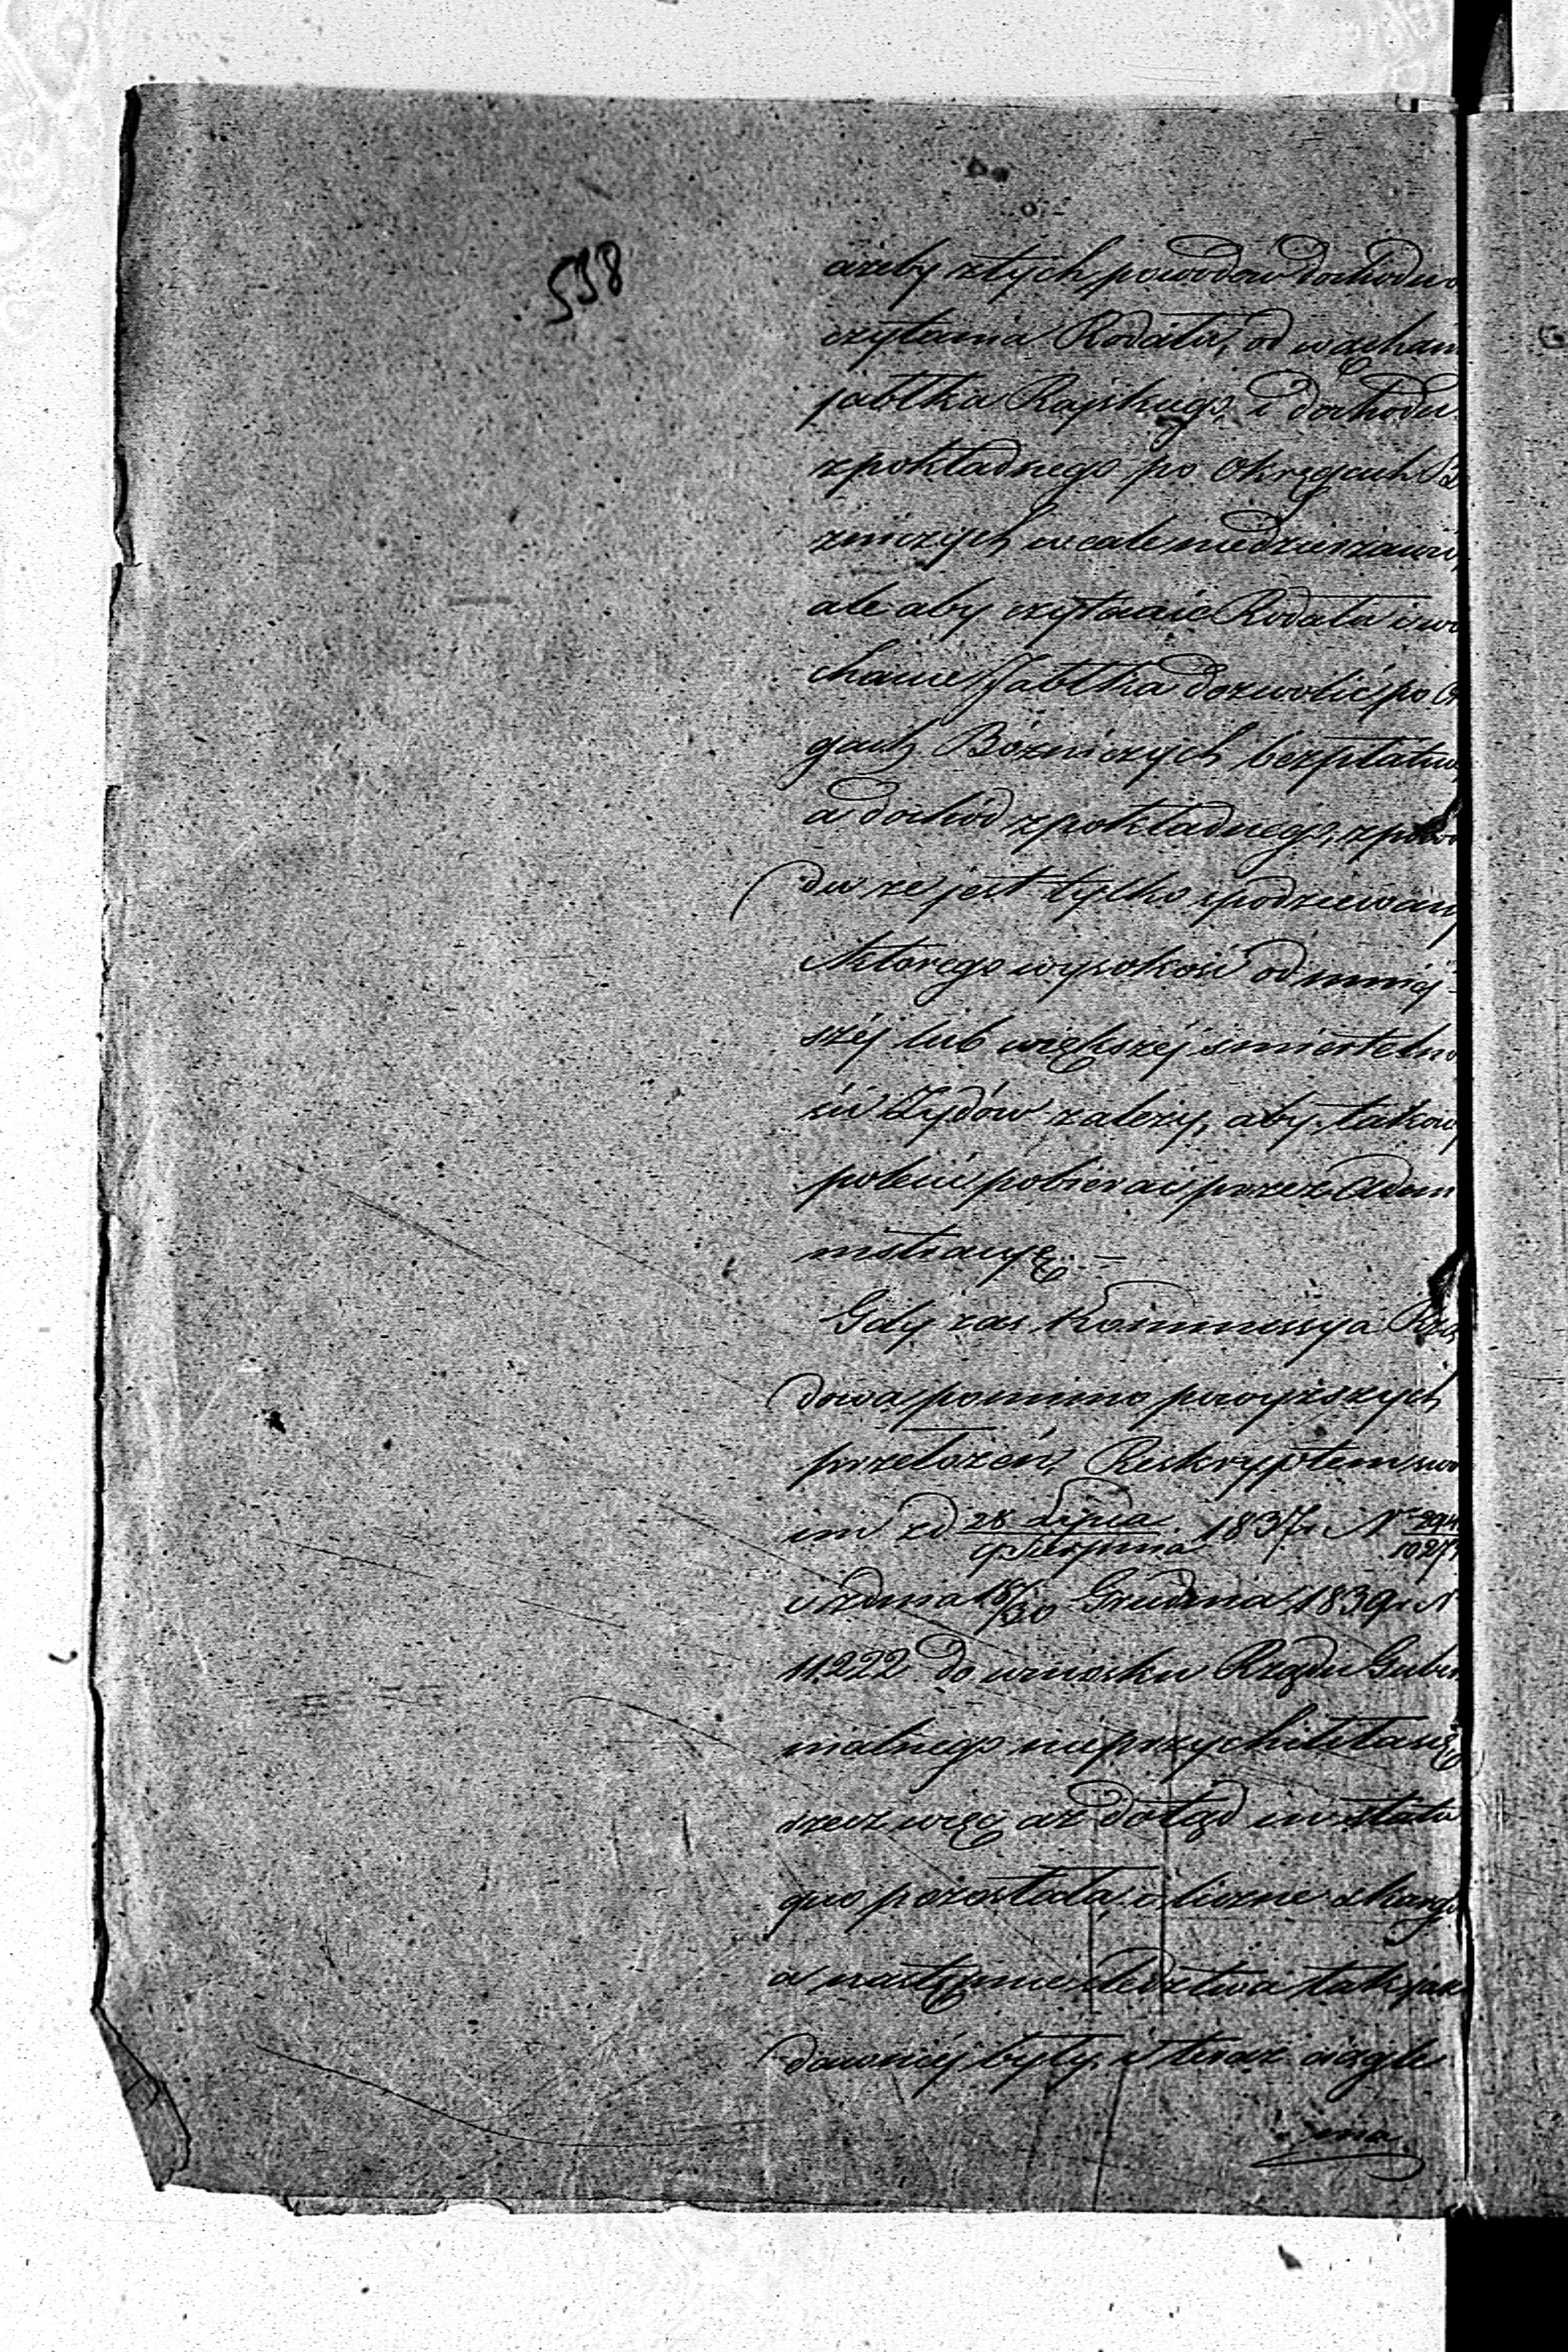 538
ażeby z tych powodów dochodu z
czytania Rodału, od wąchan
jabłka Rajskiego, i dochodu
z pokładnego po Okręgach B
żniczych wcale niedzierżawić,
ale aby czytanie Rodału i wą
chanie Jabłka dozwolić po O
gach Bożniczych bezpłatnie
a dochód z pokładnego, z powo
du że jest tylko spodziewany
którego wysokość od mniej-
széj lub większéj śmierteln
ści Żydów zależy, aby takow
polecić pobierać przez Adm
nistracyę. —
Gdy zaś Kommissya Rzą
dowa pomimo powyższych
przełożeń, Reskryptem swo
im z d 28 Lipca / 9 Sierpnia 1837 r. Nr 294 / 1027
i z dnia 18/30 Grudnia 1839 r. N
11222 do wniosku Rządu Guber
nialnego nieprzychiliła się
rzecz więc aż dotąd in statu
quo pozostała, i liczne skargi
a następnie śledztwa tak jak
dawniej były, i teraz ciągle